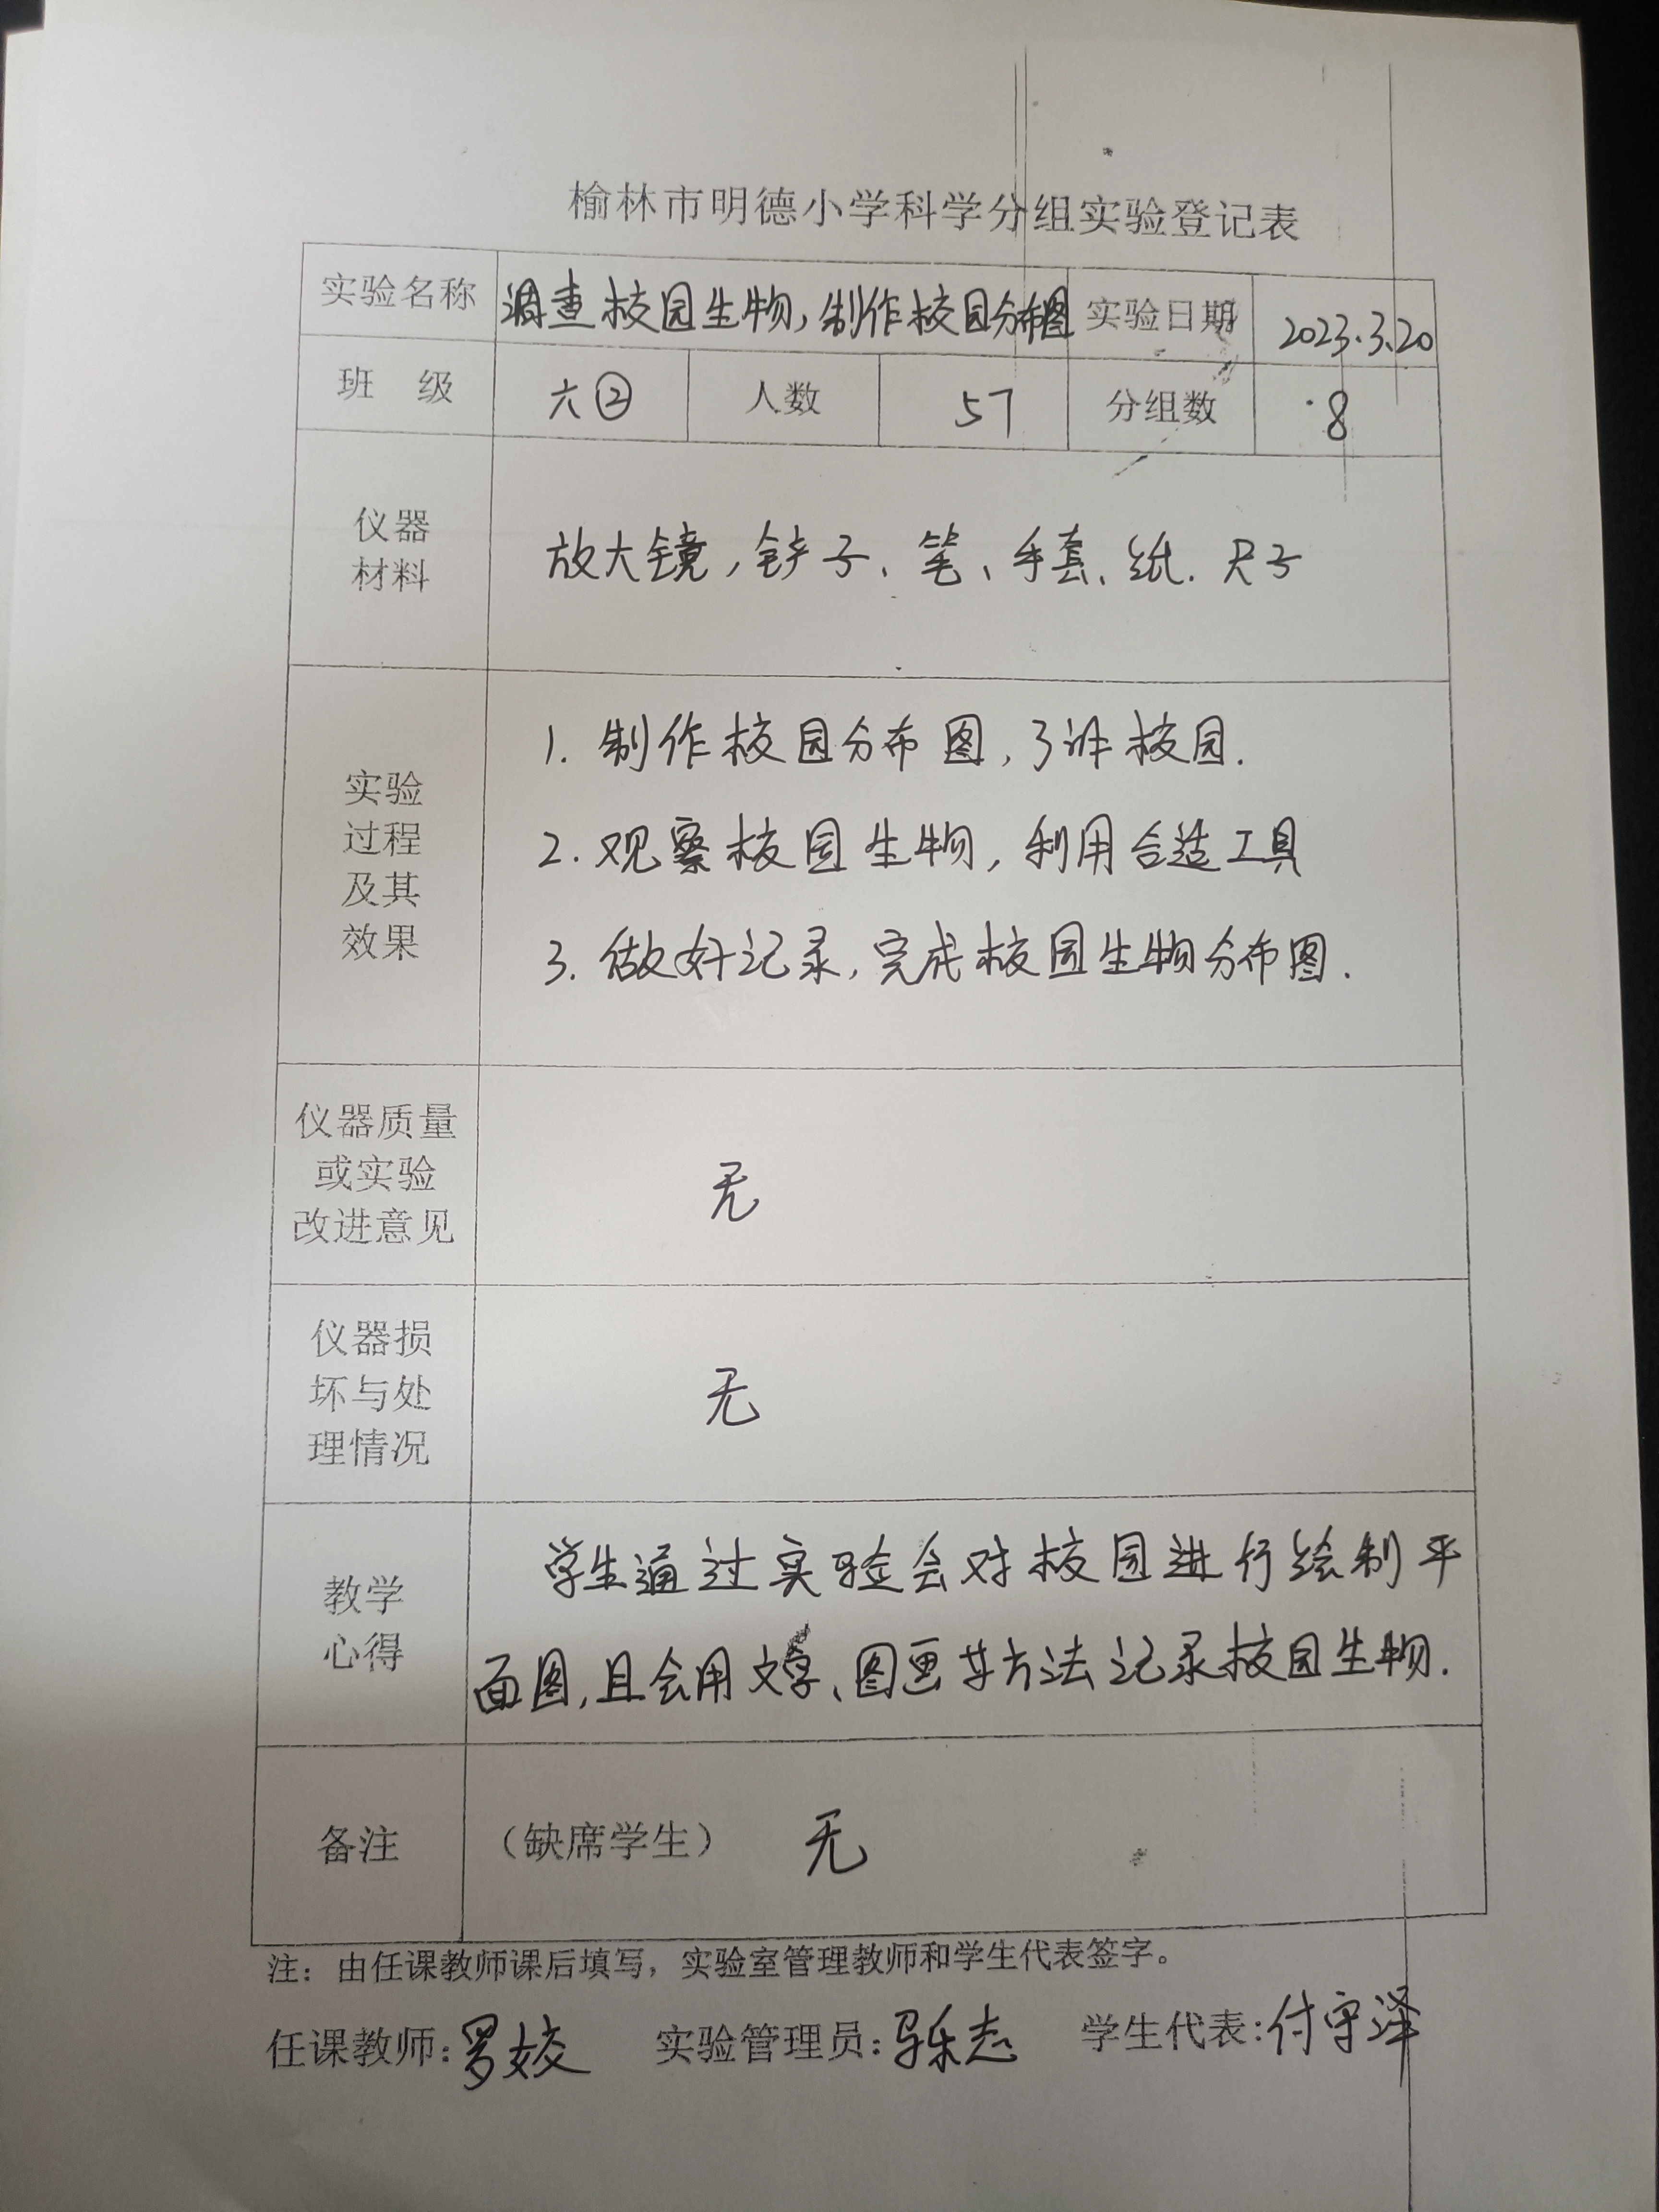 榆林市明德小学科学分组实验登记表
实验名称 调查校园生物，制作校园分布图 实验日期 2023.3.20
班 级 六② 人数 57 分组数 8
仪器
材料
放大镜，铲子、笔、手套、纸.尺子
实验
过程
及其
效果
1. 制作校园分布图，了详校园.
2. 观察校园生物，利用合适工具
3. 做好记录，完成校园生物分布图.
仪器质量
或实验
改进意见
无
仪器损
坏与处
理情况
无
教学
心得
学生通过实验会对校园进行绘制平
面图，且会用文字、图画等方法记录校园生物.
备注 （缺席学生） 无
注：由任课教师课后填写，实验室管理教师和学生代表签字。
任课教师：罗姣 实验管理员： 学生代表：付守泽